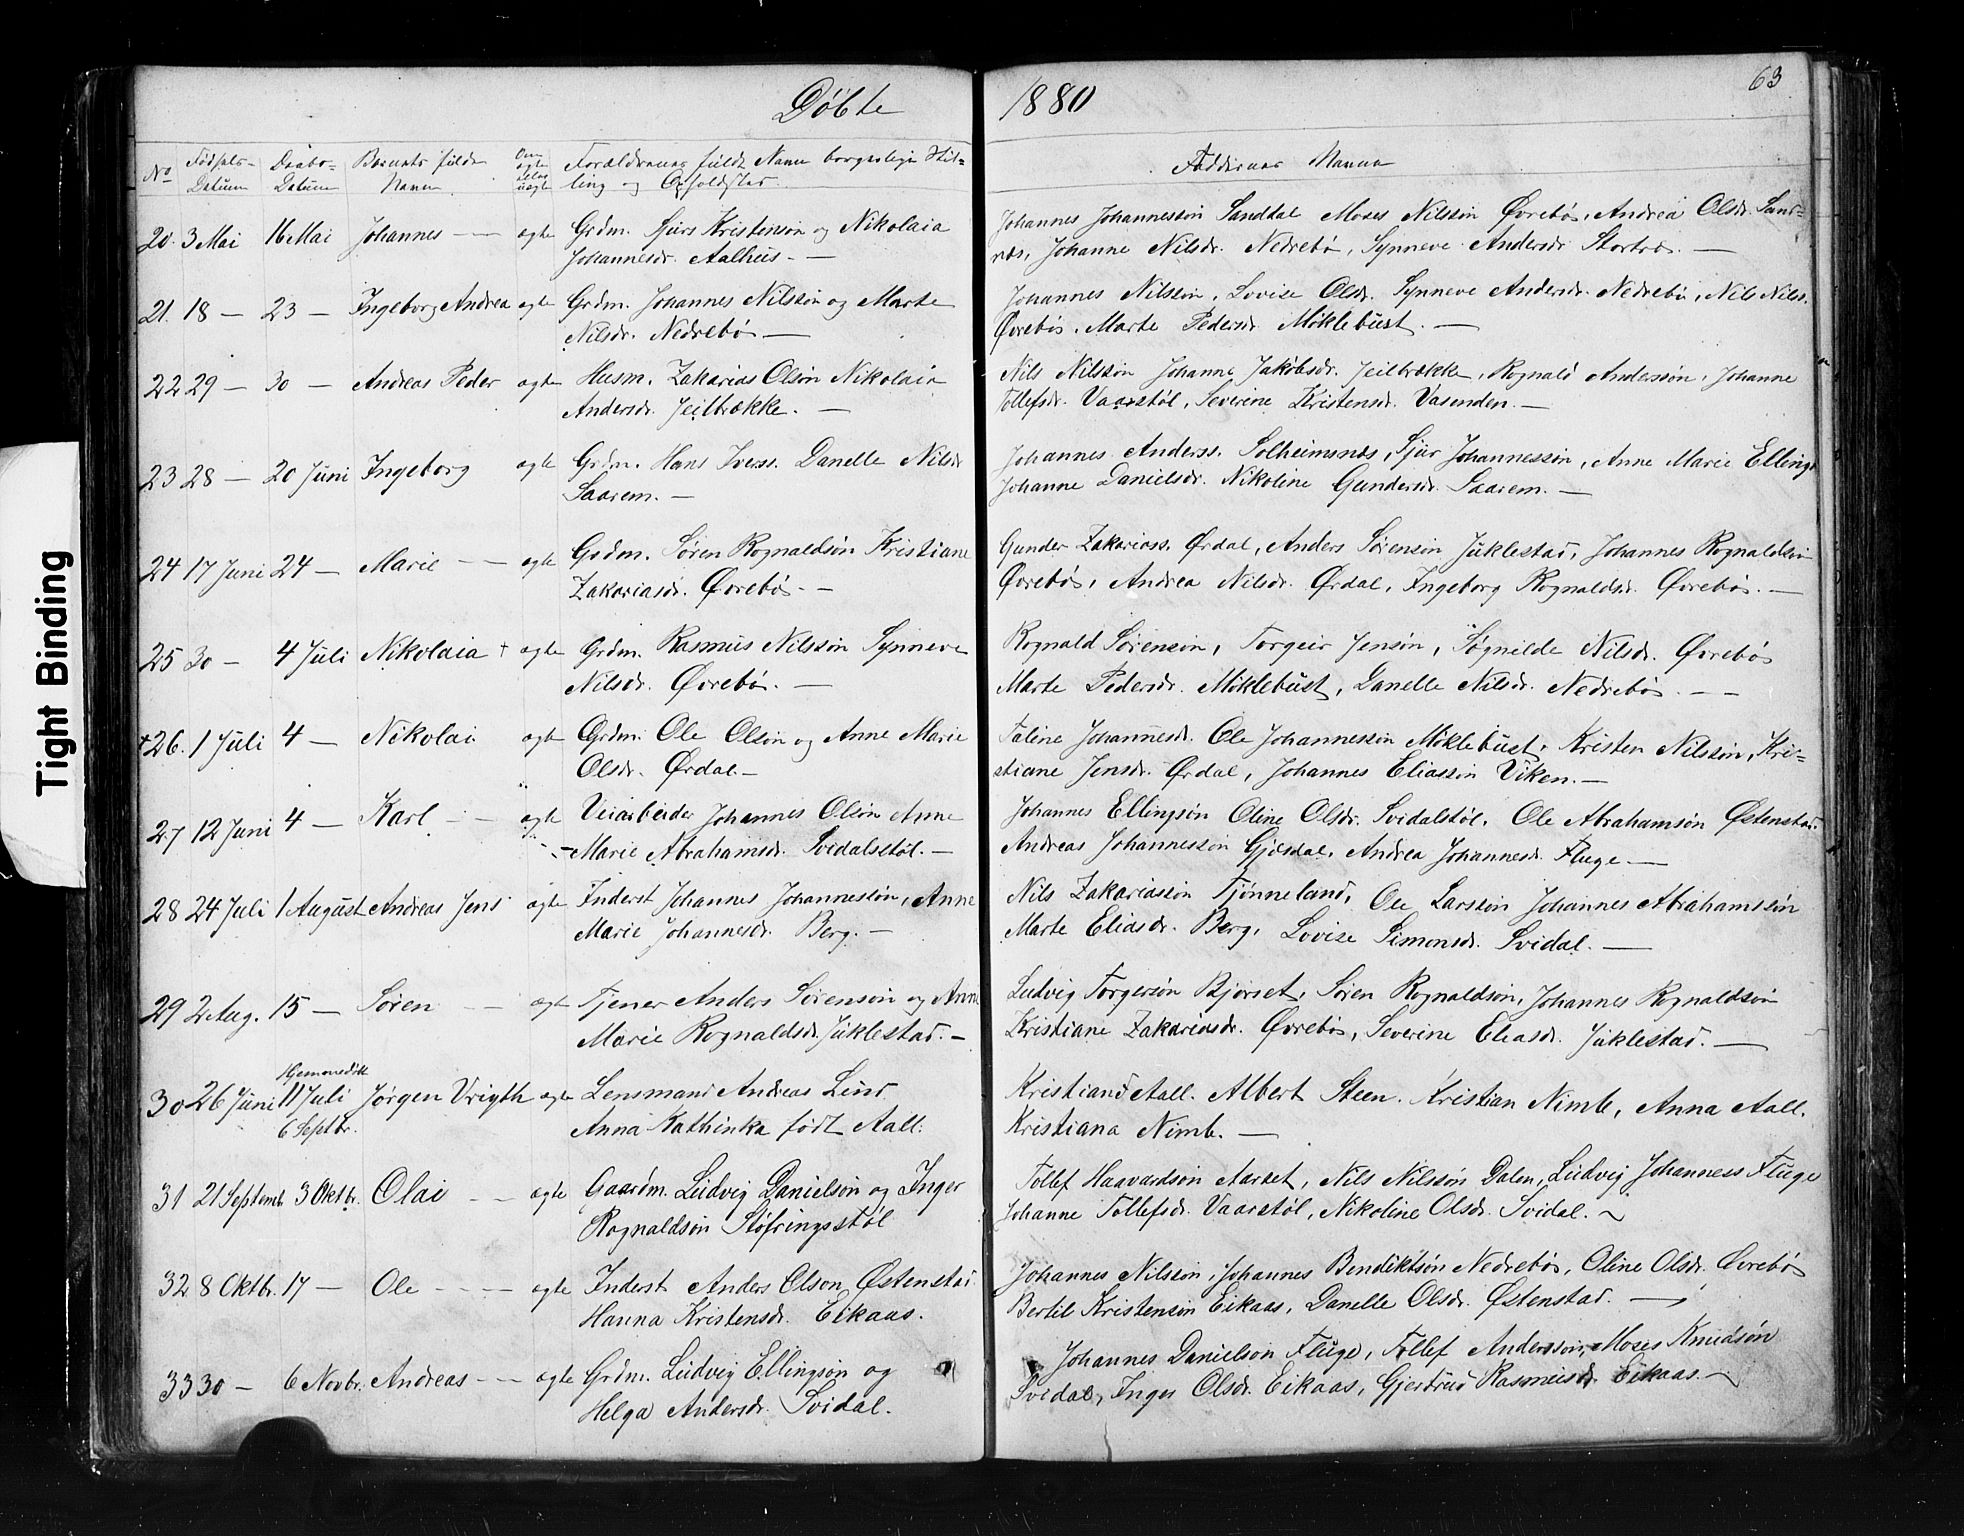 Døbte 1880
63
No Fødsels- Datum Daabs- Datum Barnets fulde Navn Om ægte eller uægte Forældrenes fulde Navn borgerlige Stil-
ling og Opholdsted.
Faddernes Navne
20. 3 Mai 16 Mai Johannes — ægte Grdm. Sjurs Kristenson og Nikolaia
Johannesdr. Aalhus. —
Johannes Johannesson Sanddal Moses Nilsson Øvrebø, Andrea Olsdr. Sand-
næs, Johanne Nilsdr. Nedrebø, Synneve Andersdr. —
21. 18 — 23 — Ingeborg Andrea ægte Grdm. Johannes Nilsson og Marte
Nilsdr. Nedrebø —
Johannes Nilsson, Lovise Olsdr. Synneve Andersdr. Nedrebø, Nils Nilss.
Øvrebø. Marte Pedersdr. Møklebust. —
22 29 — 30 — Andreas Peder ægte Husm. Zakarias Olsøn Nikolaia
Andersdr. Jeilbrække. —
Nils Nilsson Johanne Jakobsdr. Jeilbrække, Rognald Andersson, Johanne
Tollefsdr. Vaarstøl, Severine Kristensdr. Vasenden. —
23 28 — 20 Juni Ingeborg ægte Grdm. Hans Iverss. Danelle Nilsdr
Saarem. —
Johannes Anderss. Solheimsnæs, Sjur Johannesson, Anne Marie Ellings
Johanne Danielsdr. Nikoline Gundersdr. Saarem. —
24 17 Juni 24 — Marie — — ægte Grdm. Søren Rognaldsøn Kristiane
Zakariasdr. Øvrebø. —
Gunder Zakariass. Ørdal, Anders Sørensøn Juklestad, Johannes Rognaldsøn
Øvrebø, Andrea Nilsdr. Ørdal, Ingeborg Rognaldsdr. Øvrebø. —
25 30 — 4 Juli Nikolaia + ægte Grdm. Rasmus Nilsson Synneve
Nilsdr. Øvrebø. —
Rognald Sørensøn, Torgeir Jensøn, Søgnilde Nilsdr. Øvrebø
Marte Pedersdr. Møklebust, Danelle Nilsdr. Nedrebø. — —
+26. 1 Juli 4 — Nikolai ægte Grdm. Ole Olsøn og Anne Marie
Olsdr. Ørdal —
Taline Johannesdr. Ole Johannesson Møklebust. Kristen Nilsson, Kri-
stiane Jensdr. Ørdal, Johannes Eliasson Viken. —
27 12 Juni 4 — Karl — — ægte Veiarbeider Johannes Olsøn Anne
Marie Abrahamsdr. Svidalstøl. —
Johannes Ellingsøn Oline Olsdr. Svidalstøl. Ole Abrahamsøn Østenstad.
Andreas Johannesson Gjesdal, Andrea Johannesdr. Fluge —
28 24 Juli 1 August Andreas Jens ægte Inderst Johannes Johannessøn, Anne
Marie Johannesdr. Berg. —
Nils Zakariasson Tjønneland, Ole Larsson Johannes Abrahamssøn
Marte Eliasdr. Berg, Lovise Simonsdr. Svidal. —
29 2 Aug. 15 — Søren — — ægte Tjener Anders Sørensøn og Anne
Marie Rognaldsdr. Juklestad. —
Ludvig Torgersøn Bjørset, Søren Rognaldsøn, Johannes Rognaldsøn
Kristiane Zakariasdr. Øvrebø, Severine Eliasdr. Juklestad. —
30 26 Juni Hjemmedøbt 11 Juli 6 Septbr. Jørgen Vrigth ægte Lensmand Andreas Lind
Anna Kathinka født Aall.
Kristiand Aall. Albert Steen. Kristian Nimb, Anna Aall.
Kristiana Nimb. —
31 21 Septemb 3 Oktbr. Olai — — ægte Gaardm. Ludvig Danielsøn og Inger
Rognaldsøn Støfringsstøl
Tollef Haavardsøn Aarset, Nils Nilssøn Dalen, Ludvig Johanness Fluge
Johanne Tollefsdr. Vaarstøl, Nikoline Olsdr. Svidal. —
32 8 Oktbr. 17 — Ole — — — ægte Inderst Anders Olson Østenstad
Hanna Kristensdr. Eikaas.
Johannes Nilsson, Johannes Bendiktsøn Nedrebø, Oline Olsdr. Øvrebø
Bertil Kristensøn Eikaas, Danelle Olsdr. Østenstad. —
33 30 — 6 Novbr. Andreas — — ægte Grdm. Ludvig Ellingsøn og
Helga Andersdr. Svidal.
Johannes Danielsøn Fluge, Tollef Andersson, Moses Knudsøn
Svidal, Inger Olsdr. Eikaas, Gjertrud Rasmusdr. Eikaas. —
Tight Binding